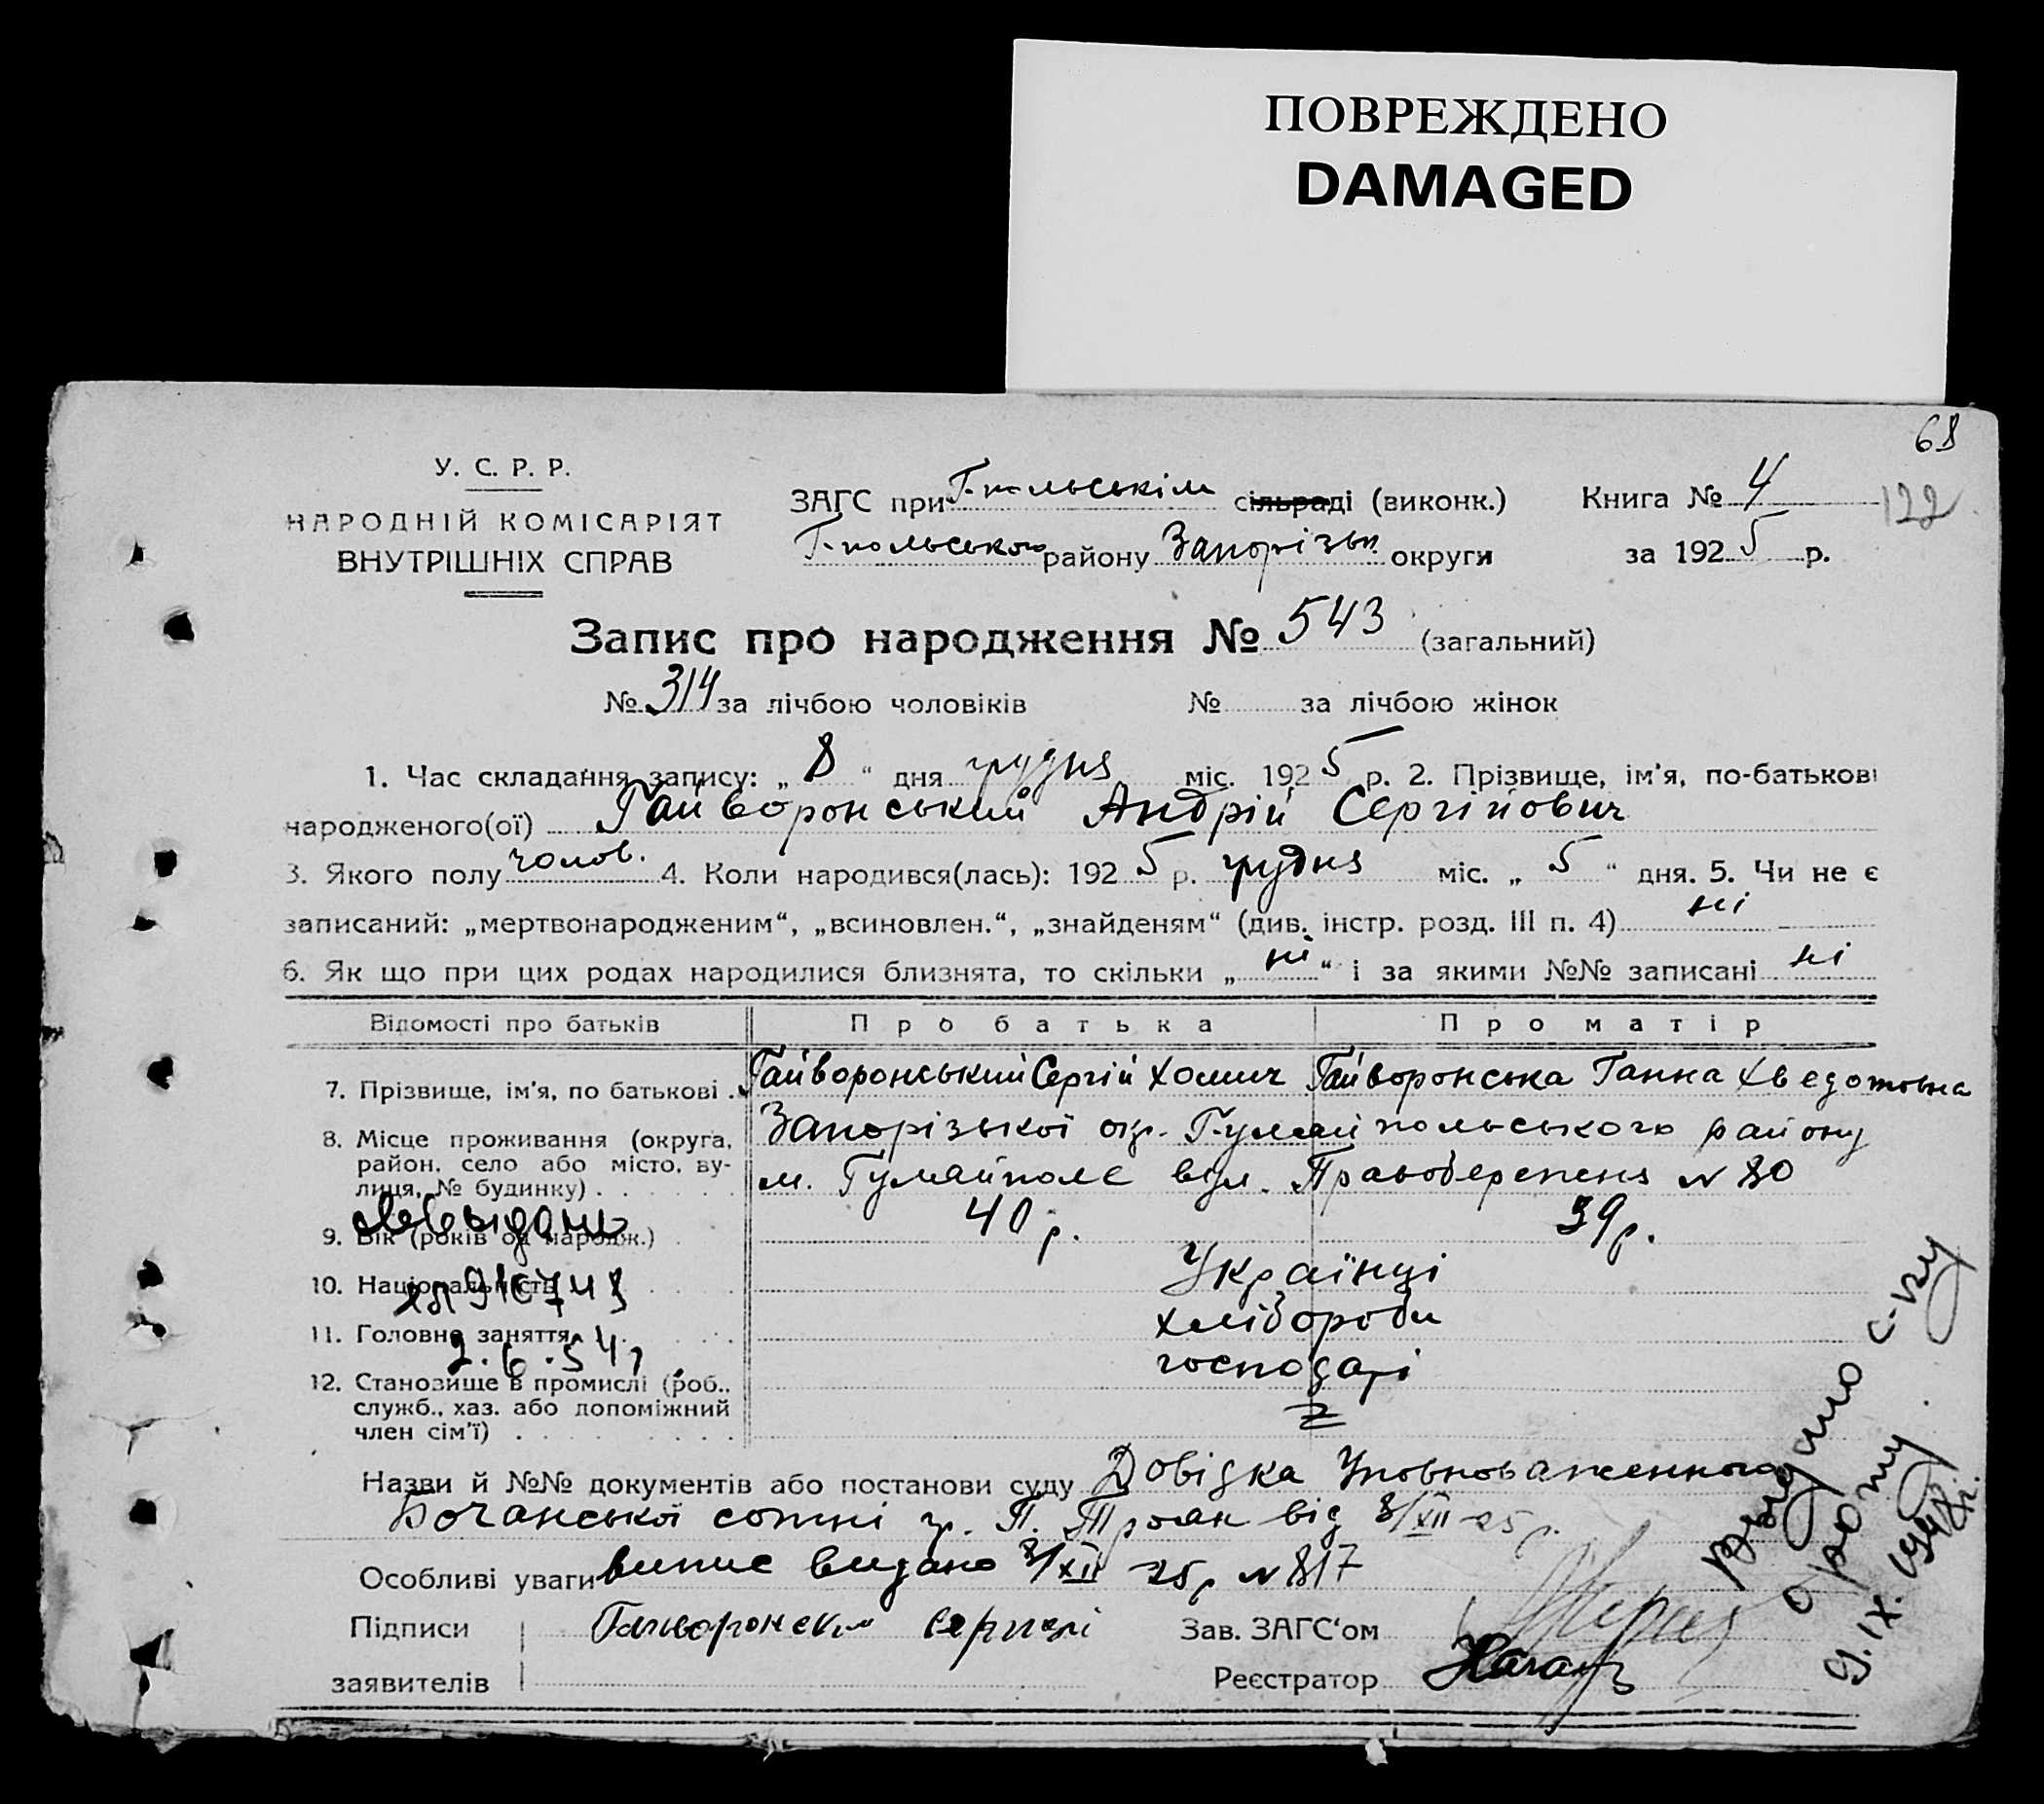 ПОВРЕЖДЕНО
DAMAGED
68
У. С. Р. Р.
НАРОДНІЙ КОМІСАРІЯТ
ВНУТРІШНІХ СПРАВ
ЗАГС при Г-польськім сільраді (виконк.) Книга № 4
122
Г-польського району Запорізьк. округи за 1925 р.
Запис про народження № 543 (загальний)
№ 314 за лічбою чоловіків № за лічбою жінок
1. Час складання запису: „ 8 “ дня грудня міс. 1925 р. 2. Прізвище, ім'я, по-батькові
народженого(ої) Гайворонський Андрій Сергійович
3. Якого полу чолов. 4. Коли народився(лась): 1925 р. грудня міс. „ 5 “ дня. 5. Чи не є
записаний: „мертвонародженим“, „всиновлен.“, „знайденям“ (див. інстр. розд. III п. 4) ні
6. Як що при цих родах народилися близнята, то скільки „ ні “ і за якими №№ записані ні
Відомості про батьків Про батька Про матір
7. Прізвище, ім'я, по батькові . Гайворонський Сергій Хомич Гайворонська Ганна Хведотовна
8. Місце проживання (округа, район, село або місто, вулиця, № будинку) . Запорізької окр. Гуляйпольського району
м. Гуляйполе вул. Правобережня № 80
9. Вік (років од народж.) 40 р. 39 р.
10. Національність Українці
11. Головне заняття хлібороби
2.6.54
12. Становище в промислі (роб., служб., хаз. або допоміжний член сім'ї) . господарі
Назви й №№ документів або постанови суду Довідка Уповноваженного
Бочанської сотні гр. П. Троян від 8/XII-25 р.
Особливі уваги випис видано 8/XII 25 р № 817
Підписи заявителів Зав. ЗАГС'ом
Реєстратор